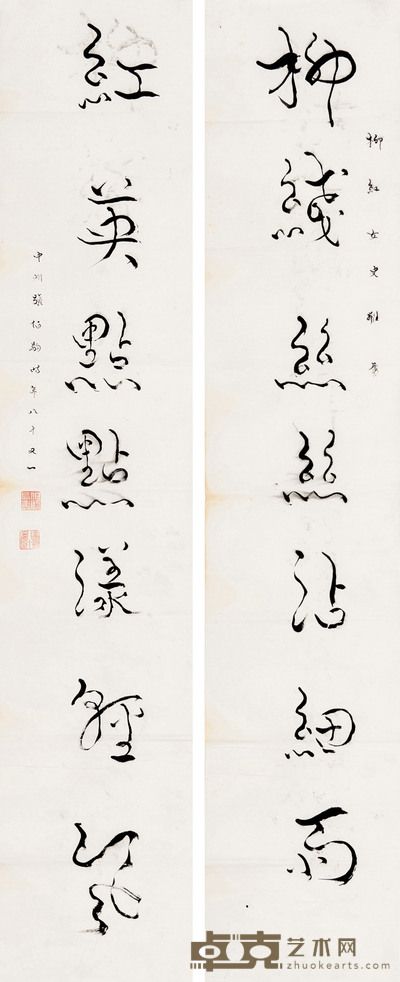 柳紅女史雅屬
柳綫絲絲沾細雨
紅英點點漾輕風
中州張伯駒時年八十又一
卓克艺术网
zhuokearts.com